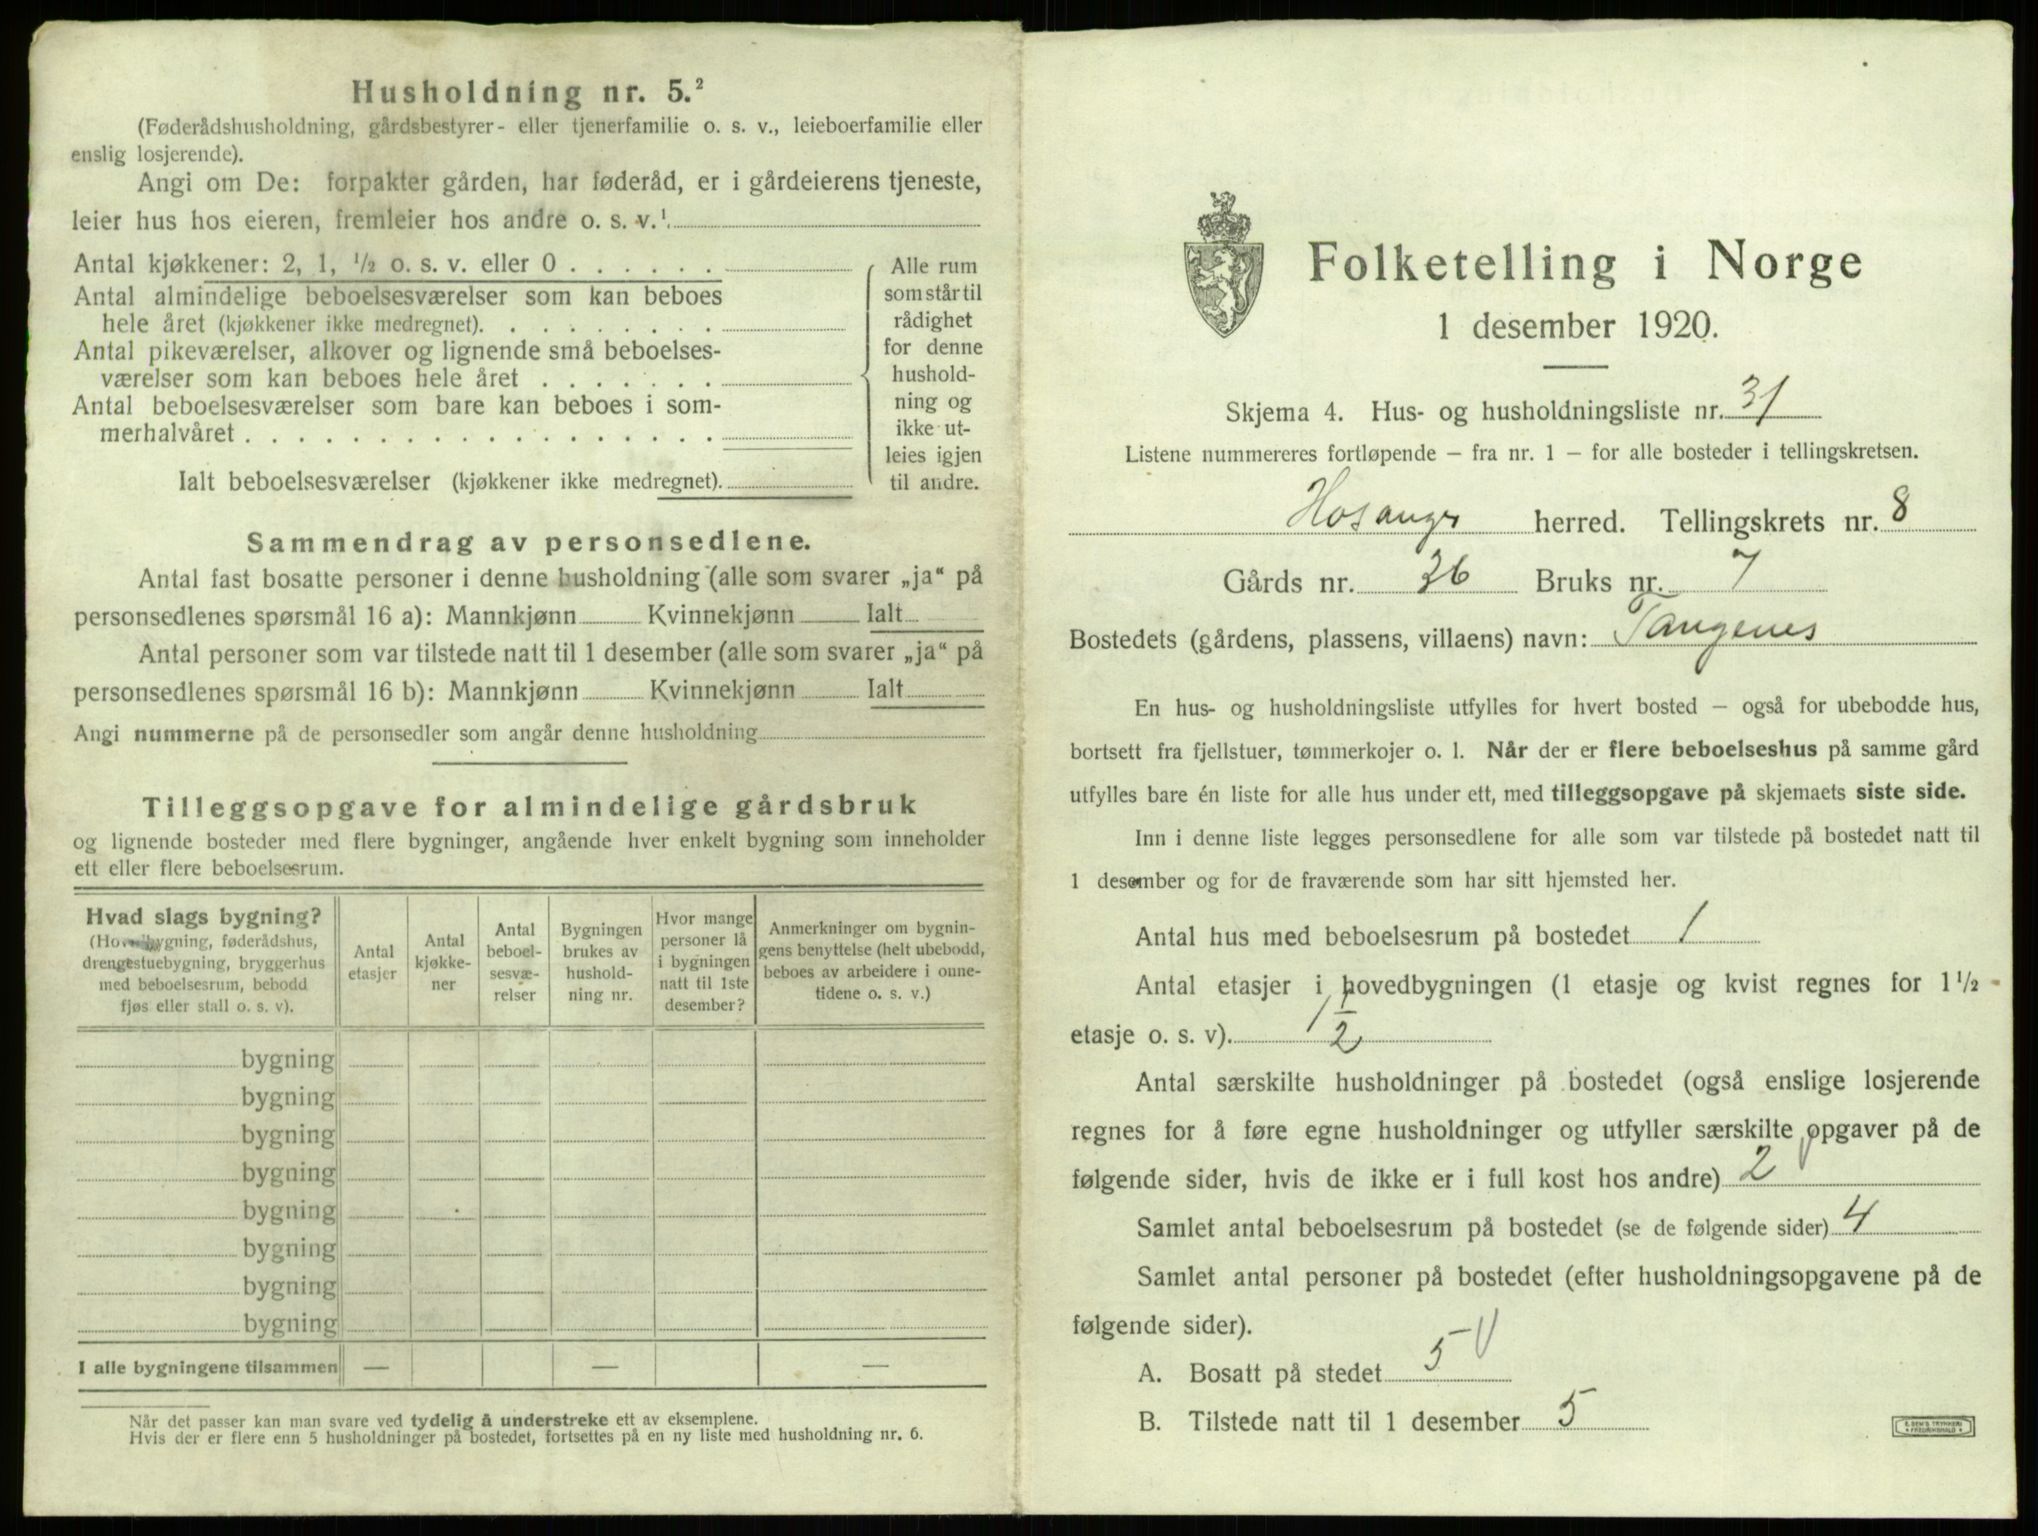 Husholdning nr. 5.²
(Føderådshusholdning, gårdsbestyrer- eller tjenerfamilie o. s. v., leieboerfamilie eller
enslig losjerende).
Angi om De: forpakter gården, har føderåd, er i gårdeierens tjeneste,
leier hus hos eieren, fremleier hos andre o. s. v.¹
Antal kjøkkener: 2, 1, ½ o. s. v. eller 0
Antal almindelige beboelsesværelser som kan beboes
hele året (kjøkkener ikke medregnet).
Antal pikeværelser, alkover og lignende små beboelses-
værelser som kan beboes hele året
Antal beboelsesværelser som bare kan beboes i som-
merhalvåret
Ialt beboelsesværelser (kjøkkener ikke medregnet).
Alle rum
som står til
rådighet
for denne
hushold-
ning og
ikke ut-
leies igjen
til andre.
Sammendrag av personsedlene.
Antal fast bosatte personer i denne husholdning (alle som svarer „ja“ på
personsedlenes spørsmål 16 a): Mannkjønn Kvinnekjønn Ialt
Antal personer som var tilstede natt til 1 desember (alle som svarer „ja“ på
personsedlenes spørsmål 16 b): Mannkjønn Kvinnekjønn Ialt
Angi nummerne på de personsedler som angår denne husholdning
Tilleggsopgave for almindelige gårdsbruk
og lignende bosteder med flere bygninger, angående hver enkelt bygning som inneholder
ett eller flere beboelsesrum.
Hvad slags bygning?
(Hovedbygning, føderådshus,
drengestuebygning, bryggerhus
med beboelsesrum, bebodd
fjøs eller stall o. s. v).
Antal
etasjer
Antal
kjøkke-
ner
Antal
beboel-
sesvæ-
relser
Bygningen
brukes av
hushold-
ning nr.
Hvor mange
personer lå
i bygningen
natt til 1ste
desember?
Anmerkninger om bygnin-
gens benyttelse (helt ubebodd,
beboes av arbeidere i onne-
tidene o. s. v.)
bygning
bygning
bygning
bygning
bygning
bygning
bygning
bygning
I alle bygningene tilsammen — — —
Når det passer kan man svare ved tydelig å understreke ett av eksemplene.
Hvis der er flere enn 5 husholdninger på bostedet, fortsettes på en ny liste med husholdning nr. 6.
Folketelling i Norge
1 desember 1920.
Skjema 4. Hus- og husholdningsliste nr. 31
Listene nummereres fortløpende – fra nr. 1 – for alle bosteder i tellingskretsen.
Hosanger herred. Tellingskrets nr. 8
Gårds nr. 36 Bruks nr. 7
Bostedets (gårdens, plassens, villaens) navn: Tangenes
En hus- og husholdningsliste utfylles for hvert bosted – også for ubebodde hus,
bortsett fra fjellstuer, tømmerkojer o. l. Når der er flere beboelseshus på samme gård
utfylles bare én liste for alle hus under ett, med tilleggsopgave på skjemaets siste side.
Inn i denne liste legges personsedlene for alle som var tilstede på bostedet natt til
1 desember og for de fraværende som har sitt hjemsted her.
Antal hus med beboelsesrum på bostedet 1
Antal etasjer i hovedbygningen (1 etasje og kvist regnes for 1½
etasje o. s. v). 1 1/2
Antal særskilte husholdninger på bostedet (også enslige losjerende
regnes for å føre egne husholdninger og utfyller særskilte opgaver på de
følgende sider, hvis de ikke er i full kost hos andre) 2
Samlet antal beboelsesrum på bostedet (se de følgende sider) 4
Samlet antal personer på bostedet (efter husholdningsopgavene på de
følgende sider).
A. Bosatt på stedet 5
B. Tilstede natt til 1 desember 5
E. SEM'S TRYKKERI
FREDRIKSHALD